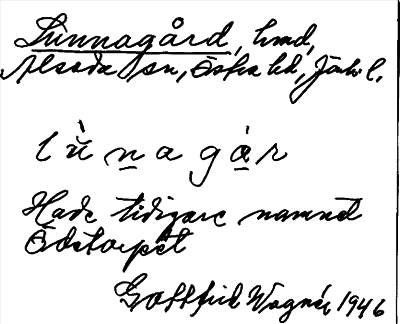 Lunnagård, hmd,
Alseda sn, Östra hd, Jönk. l.
lù n a g á r
Hade tidigare namnet
Ödetorpet
Gottfrid Wagnér 1946